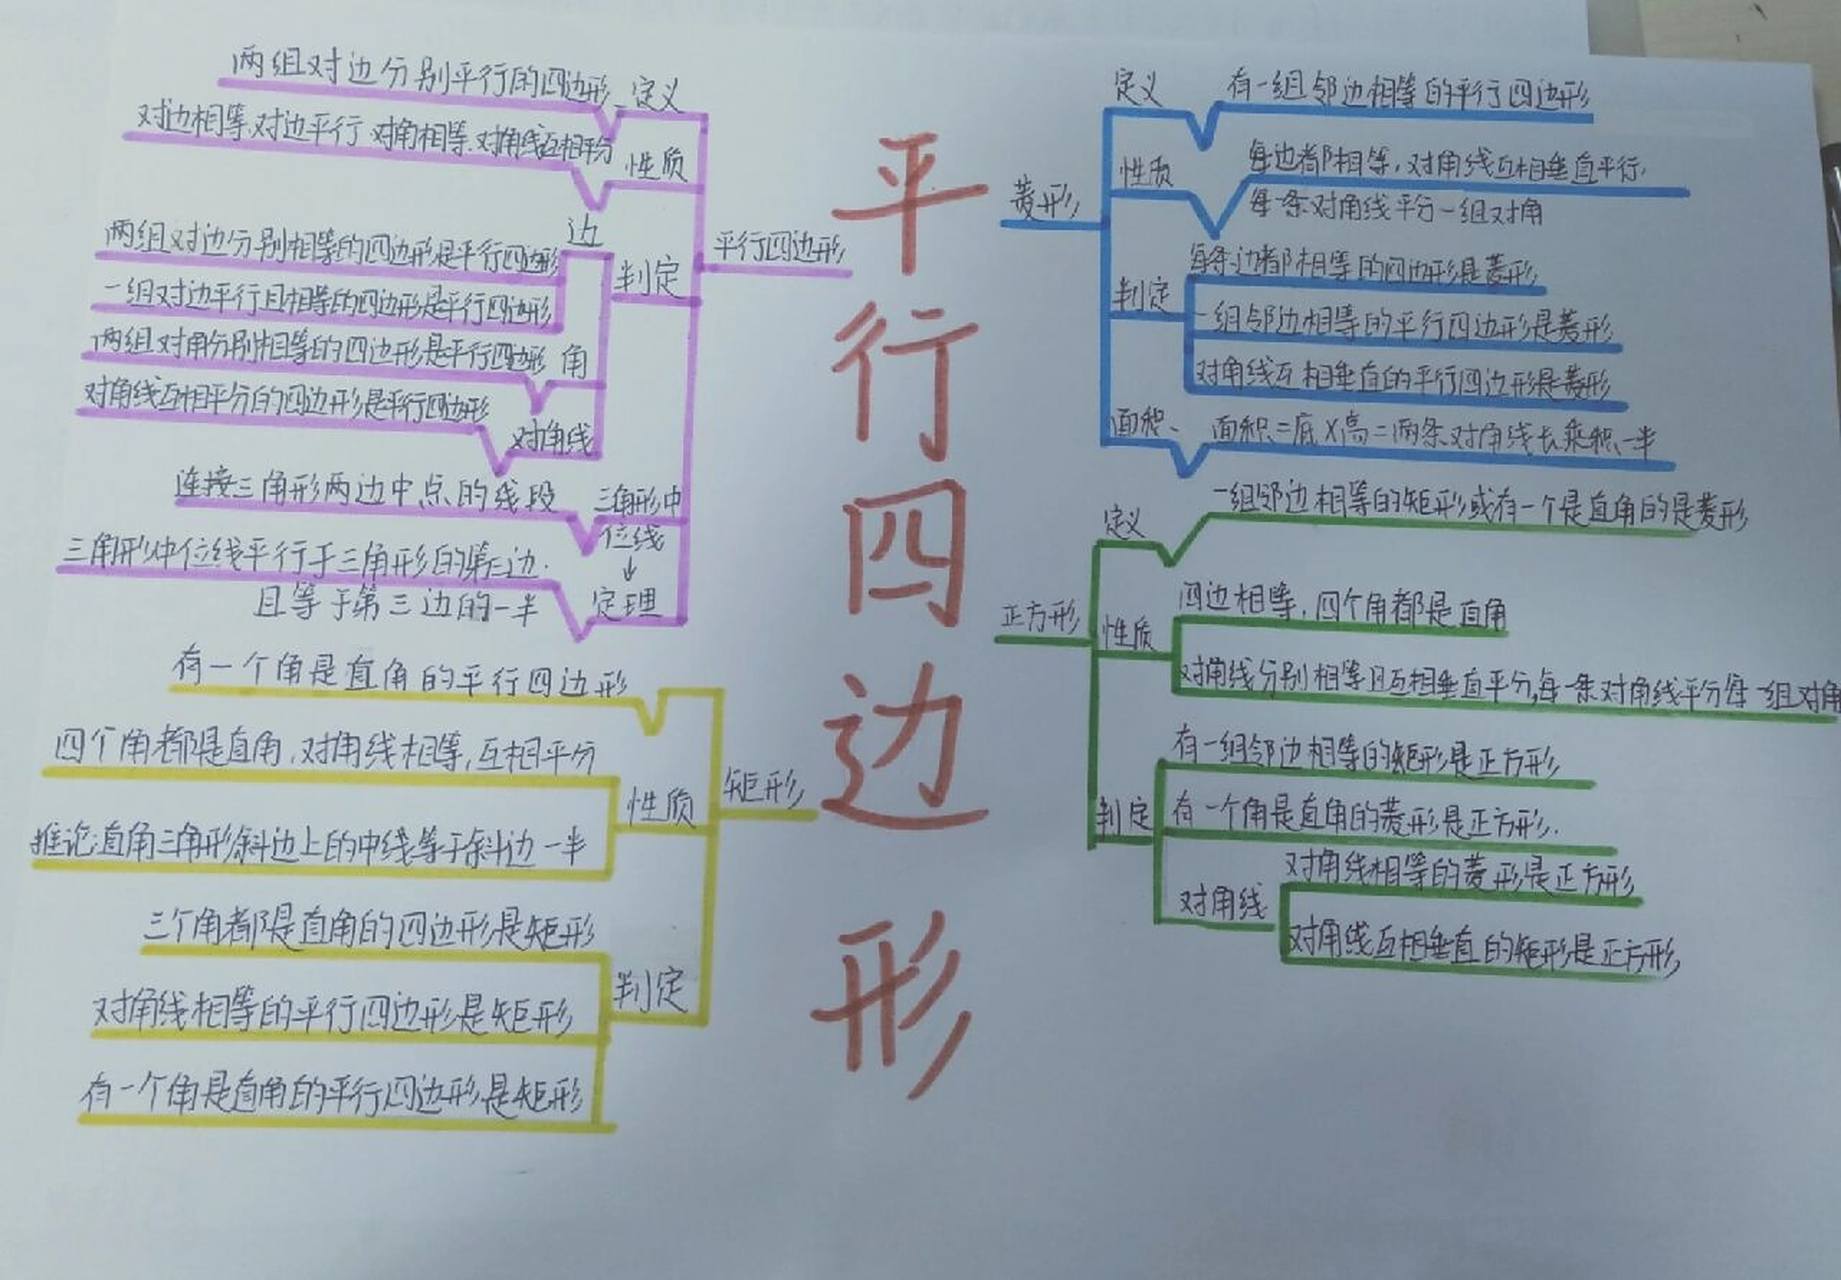 平行四边形
平行四边形
定义
两组对边分别平行的四边形
性质
对边相等.对边平行 对角相等.对角线互相平分
判定
边
两组对边分别相等的四边形是平行四边形
一组对边平行且相等的四边形是平行四边形
角
两组对角分别相等的四边形是平行四边形
对角线
对角线互相平分的四边形是平行四边形
三角形中
位线
↓
定理
连接三角形两边中点的线段
三角形中位线平行于三角形的第三边.
且等于第三边的一半
矩形
有一个角是直角的平行四边形
性质
四个角都是直角,对角线相等,互相平分
推论:直角三角形斜边上的中线等于斜边一半
判定
三个角都是直角的四边形是矩形
对角线相等的平行四边形是矩形
有一个角是直角的平行四边形是矩形
菱形
定义
有一组邻边相等的平行四边形
性质
每边都相等,对角线互相垂直平行.
每一条对角线平分一组对角
判定
每条边都相等的四边形是菱形
一组邻边相等的平行四边形是菱形
对角线互相垂直的平行四边形是菱形
面积.
面积=底×高=两条对角线长乘积一半
正方形
定义
一组邻边相等的矩形或有一个是直角的是菱形
性质
四边相等,四个角都是直角
对角线分别相等且互相垂直平分,每一条对角线平分每一组对角
判定
有一组邻边相等的矩形是正方形
有一个角是直角的菱形是正方形.
对角线
对角线相等的菱形是正方形
对角线互相垂直的矩形是正方形